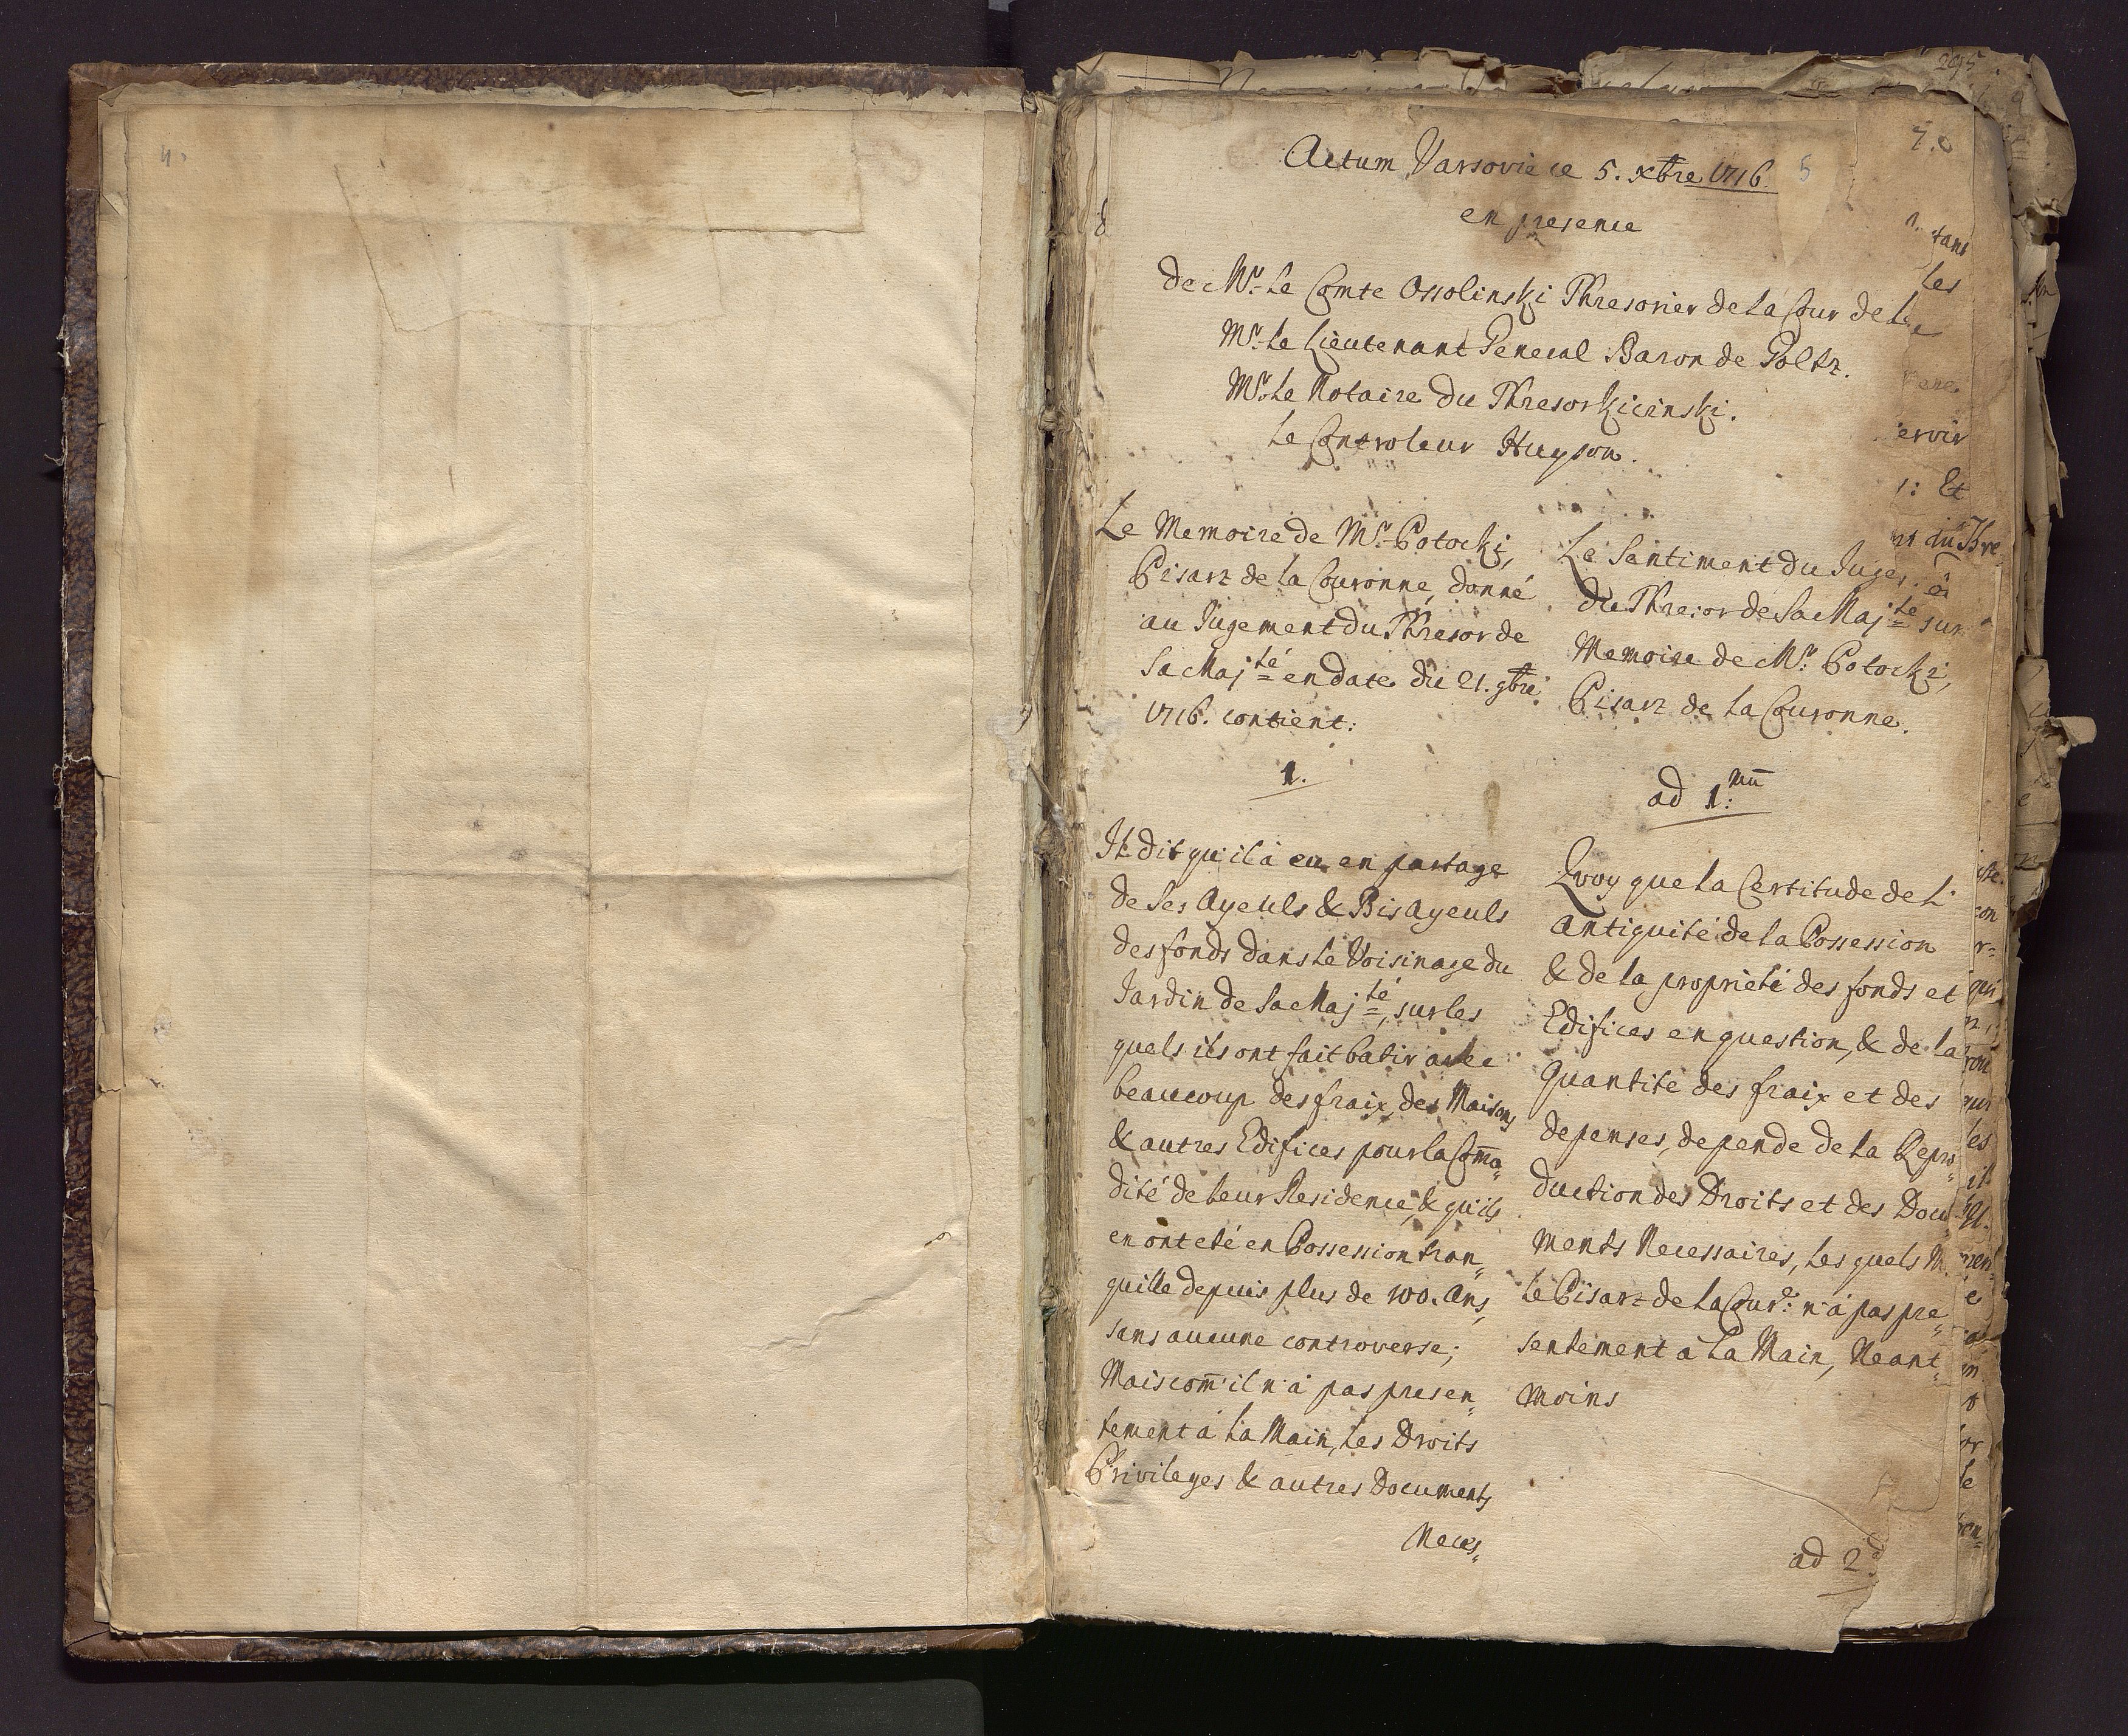 4.
7.
Actum Varsovie ce 5. xbre 1716.
5
en presence
de Mr. Le Comte Ossolinski Thresorier de la Cour de La
Mr. Le Lieutenant General Baron de Goltz.
Mr. Le Notaire du Thresor Kicinski.
Le Controleur Huyson.
Le Memoire de Mr. Potocki,
Pisarz de la Couronne, donné
au Jugement du Thresor de
Sa Majté en date du 21. 9bre
1716. contient:
1.
Il dit qu'il à eu en partage
de Ses Ayeuls & Bisayeuls
des fonds dans le Voisinage du
Jardin de Sa Majté, sur les
quels ils ont fait batir avec
beaucoup des fraix, des Maisons
& autres Edifices pour la Com̄o„
dité de leur Residence, & qu'ils
en ont eté en Possession tran„
quille depuis plus de 100. Ans,
sans aucune controverse;
Mais com̄' il n'à pas presen„
tement à la Main, les Droits
Privileges & autres Documents
Neces„
Le Santiment du Juge
du Thresor de Sa Majté sur
Memoire de Mr. Potocki,
Pisarz de la Couronne.
ad 1:mū
Quoy que la Certitude de L'
Antiquité de la Possession
& de la proprieté des fonds et
Edifices en question, & de la
Quantité des fraix et des
depenses, depende de la Repro„
duction des Droits et des Docu„
ments Necessaires, les quels M.
le Pisarz de la Cour: n'à pas pre„
sentement à la Main, Neant„
moins
ad 2.d
295
les
ervir
: Et